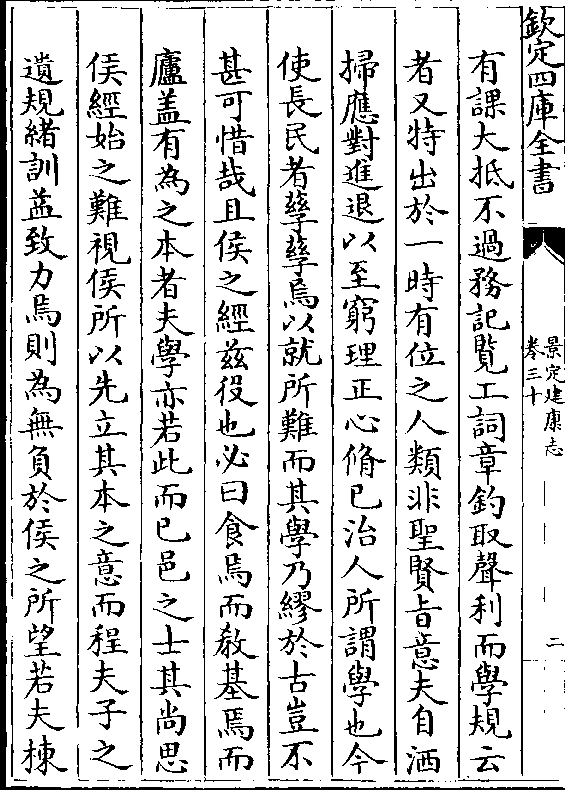 欽定四庫全書
景定建康志
卷三十
二
有課大抵不過務記覽工詞章釣取聲利而學規云
者又特出於一時有位之人類非聖賢㫖意夫自洒
掃應對進退以至窮理正心脩已治人所謂學也今
使長民者孳孳焉以就所難而其學乃繆於古豈不
甚可惜哉且侯之經兹役也必曰食焉而教基焉而
廬盖有為之本者夫學亦若此而已邑之士其尚思
侯經始之難視侯所以先立其本之意而程夫子之
遺規緒訓益致力焉則為無負於侯之所望若夫棟